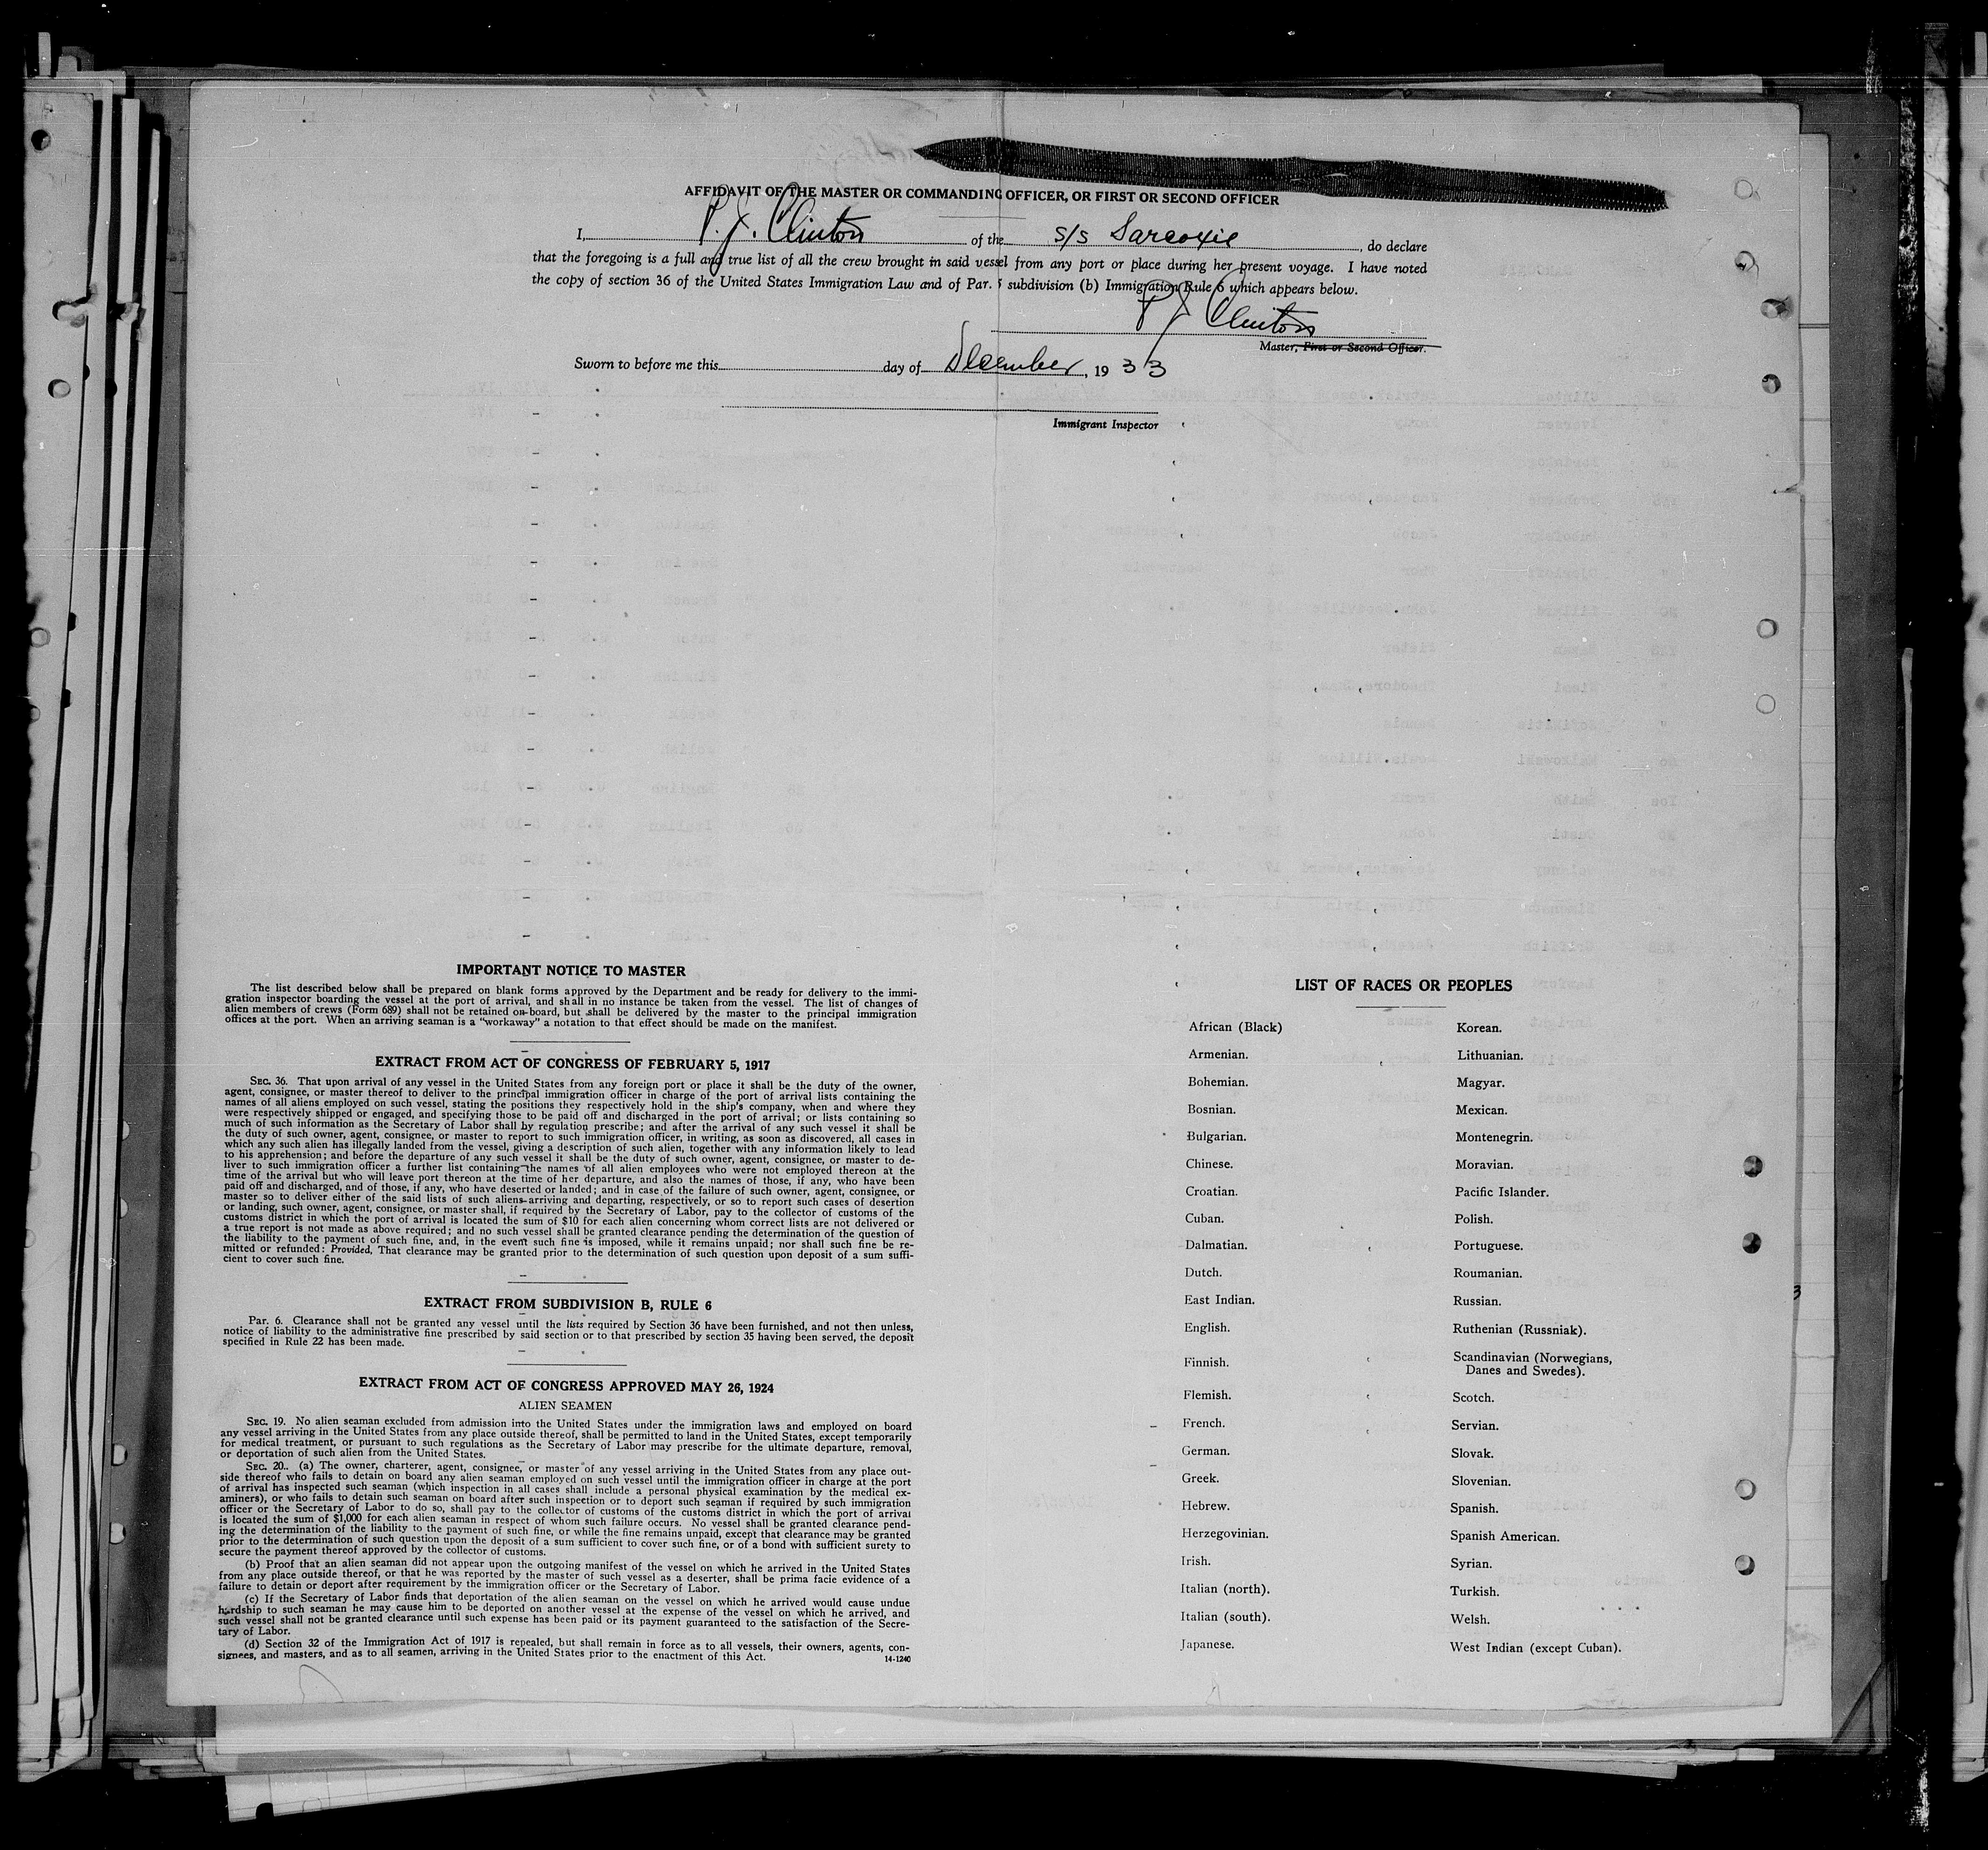 AFFIDAVIT OF THE MASTER OR COMMANDING OFFICER, OR FIRST OR SECOND OFFICER
I, P. J. Clinton of the s/s Sarcoxie, do declare
that the foregoing is a full and true list of all the crew brought in said vessel from any port or place during her present voyage. I have noted
the copy of section 36 of the United States Immigration Law and of Par. subdivision (b) Immigration Rule 6 which appears below.
P J Clinton
Master, First or Second Officer.
Sworn to before me this day of December, 1933
Immigrant Inspector
IMPORTANT NOTICE TO MASTER
The list described below shall be prepared on blank forms approved by the Department and be ready for delivery to the immi-
gration inspector boarding the vessel at the port of arrival, and shall in no instance be taken from the vessel. The list of changes of
alien members of crews (Form 689) shall not be retained on board, but shall be delivered by the master to the principal immigration
offices at the port. When an arriving seaman is a "workaway" a notation to that effect should be made on the manifest.
EXTRACT FROM ACT OF CONGRESS OF FEBRUARY 5, 1917
SEC. 36. That upon arrival of any vessel in the United States from any foreign port or place it shall be the duty of the owner,
agent, consignee, or master thereof to deliver to the principal immigration officer in charge of the port of arrival lists containing the
names of all aliens employed on such vessel, stating the positions they respectively hold in the ship's company, when and where they
were respectively shipped or engaged, and specifying those to be paid off and discharged in the port of arrival; or lists containing so
much of such information as the Secretary of Labor shall by regulation prescribe; and after the arrival of any such vessel it shall be
the duty of such owner, agent, consignee, or master to report to such immigration officer, in writing, as soon as discovered, all cases in
which any such alien has illegally landed from the vessel, giving a description of such alien, together with any information likely to lead
to his apprehension; and before the departure of any such vessel it shall be the duty of such owner, agent, consignee, or master to de-
liver to such immigration officer a further list containing the names of all alien employees who were not employed thereon at the
time of the arrival but who will leave port thereon at the time of her departure, and also the names of those, if any, who have been
paid off and discharged, and of those, if any, who have deserted or landed; and in case of the failure of such owner, agent, consignee, or
master so to deliver either of the said lists of such aliens arriving and departing, respectively, or so to report such cases of desertion
or landing, such owner, agent, consignee, or master shall, if required by the Secretary of Labor, pay to the collector of customs of the
customs district in which the port of arrival is located the sum of $10 for each alien concerning whom correct lists are not delivered or
a true report is not made as above required; and no such vessel shall be granted clearance pending the determination of the question of
the liability to the payment of such fine, and, in the event such fine is imposed, while it remains unpaid; nor shall such fine be re-
mitted or refunded: Provided, That clearance may be granted prior to the determination of such question upon deposit of a sum suffi-
cient to cover such fine.
EXTRACT FROM SUBDIVISION B, RULE 6
Par. 6. Clearance shall not be granted any vessel until the lists required by Section 36 have been furnished, and not then unless,
notice of liability to the administrative fine prescribed by said section or to that prescribed by section 35 having been served, the deposit
specified in Rule 22 has been made.
EXTRACT FROM ACT OF CONGRESS APPROVED MAY 26, 1924
ALIEN SEAMEN
SEC. 19. No alien seaman excluded from admission into the United States under the immigration laws and employed on board
any vessel arriving in the United States from any place outside thereof, shall be permitted to land in the United States, except temporarily
for medical treatment, or pursuant to such regulations as the Secretary of Labor may prescribe for the ultimate departure, removal,
or deportation of such alien from the United States.
SEC. 20. (a) The owner, charterer, agent, consignee, or master of any vessel arriving in the United States from any place out-
side thereof who fails to detain on board any alien seaman employed on such vessel until the immigration officer in charge at the port
of arrival has inspected such seaman (which inspection in all cases shall include a personal physical examination by the medical ex-
aminers), or who fails to detain such seaman on board after such inspection or to deport such seaman if required by such immigration
officer or the Secretary of Labor to do so, shall pay to the collector of customs of the customs district in which the port of arrival
is located the sum of $1,000 for each alien seaman in respect of whom such failure occurs. No vessel shall be granted clearance pend-
ing the determination of the liability to the payment of such fine, or while the fine remains unpaid, except that clearance may be granted
prior to the determination of such question upon the deposit of a sum sufficient to cover such fine, or of a bond with sufficient surety to
secure the payment thereof approved by the collector of customs.
(b) Proof that an alien seaman did not appear upon the outgoing manifest of the vessel on which he arrived in the United States
from any place outside thereof, or that he was reported by the master of such vessel as a deserter, shall be prima facie evidence of a
failure to detain or deport after requirement by the immigration officer or the Secretary of Labor.
(c) If the Secretary of Labor finds that deportation of the alien seaman on the vessel on which he arrived would cause undue
hardship to such seaman he may cause him to be deported on another vessel at the expense of the vessel on which he arrived, and
such vessel shall not be granted clearance until such expense has been paid or its payment guaranteed to the satisfaction of the Secre-
tary of Labor.
(d) Section 32 of the Immigration Act of 1917 is repealed, but shall remain in force as to all vessels, their owners, agents, con-
signees, and masters, and as to all seamen, arriving in the United States prior to the enactment of this Act.
14-1240
LIST OF RACES OR PEOPLES
African (Black)
Armenian.
Bohemian.
Bosnian.
Bulgarian.
Chinese.
Croatian.
Cuban.
Dalmatian.
Dutch.
East Indian.
English.
Finnish.
Flemish.
French.
German.
Greek.
Hebrew.
Herzegovinian.
Irish.
Italian (north).
Italian (south).
Japanese.
Korean.
Lithuanian.
Magyar.
Mexican.
Montenegrin.
Moravian.
Pacific Islander.
Polish.
Portuguese.
Roumanian.
Russian.
Ruthenian (Russniak).
Scandinavian (Norwegians,
Danes and Swedes).
Scotch.
Servian.
Slovak.
Slovenian.
Spanish.
Spanish American.
Syrian.
Turkish.
Welsh.
West Indian (except Cuban).